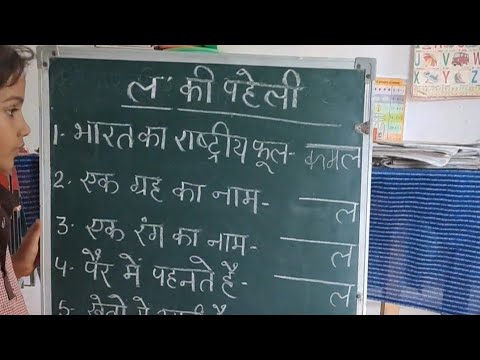 ल" की पहेली
1- भारत का राष्ट्रीय फूल- कमल
2. एक ग्रह का नाम- ___ल
3. एक रंग का नाम- ___ल
4. पैर में पहनते है- ___ल
5-
J
V W X